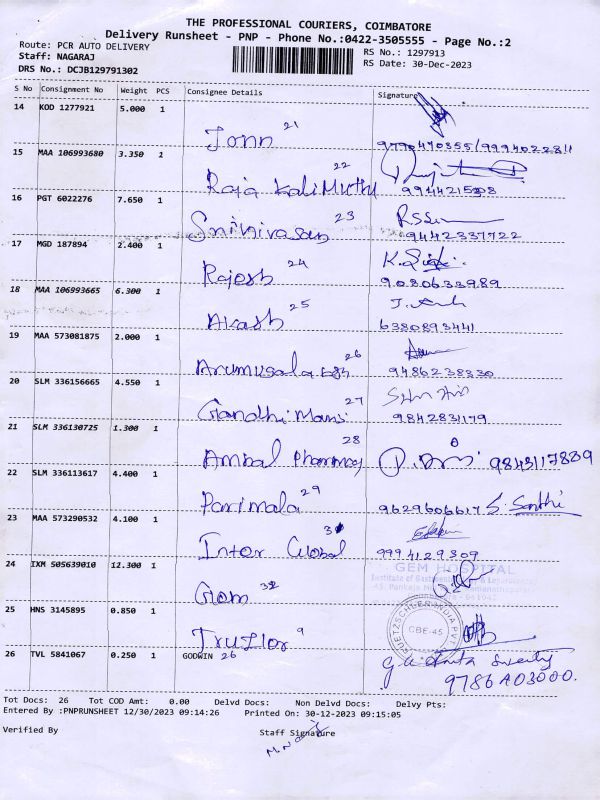 THE PROFESSIONAL COURIERS, COIMBATORE
Delivery Runsheet - PNP - Phone No.:0422-3505555 - Page No.:2
Route: PCR AUTO DELIVERY RS No.: 1297913
Staff: NAGARAJ RS Date: 30-Dec-2023
DRS No.: DCJB129791302
S No Consignment No Weight PCS Consignee Details Signature
14 KOD 1277921 5.000 1
John 21 9790470355/9994022811
15 MAA 106993680 3.350 1
Raja Kali Muthu 22 9944215308
16 PGT 6022276 7.650 1
Srinivasan 23 9442337722
17 MGD 187894 2.400 1
Rajesh 24 9080633989
18 MAA 106993665 6.300 1
Akash 25 6380893441
19 MAA 573081875 2.000 1
Arumugala 26 9486238330
20 SLM 336156665 4.550 1
Gandhi Mani 27 9842831179
21 SLM 336130725 1.300 1
Ambal Pharmacy 28 9843117839
22 SLM 336113617 4.400 1
Parimala 29 9629606617 S. Santhi
23 MAA 573290532 4.100 1
Inter Global 9994129309
24 IXM 505639010 12.300 1
GEM HOSPITAL
Gem 32
25 HNS 3145895 0.850 1
CBE-45
Truflor 9
26 TVL 5841067 0.250 1 GODWIN 26
9786A03000.
Tot Docs: 26 Tot COD Amt: 0.00 Delvd Docs: Non Delvd Docs: Delvy Pts:
Entered By :PNPRUNSHEET 12/30/2023 09:14:26 Printed On: 30-12-2023 09:15:05
Verified By Staff Signature